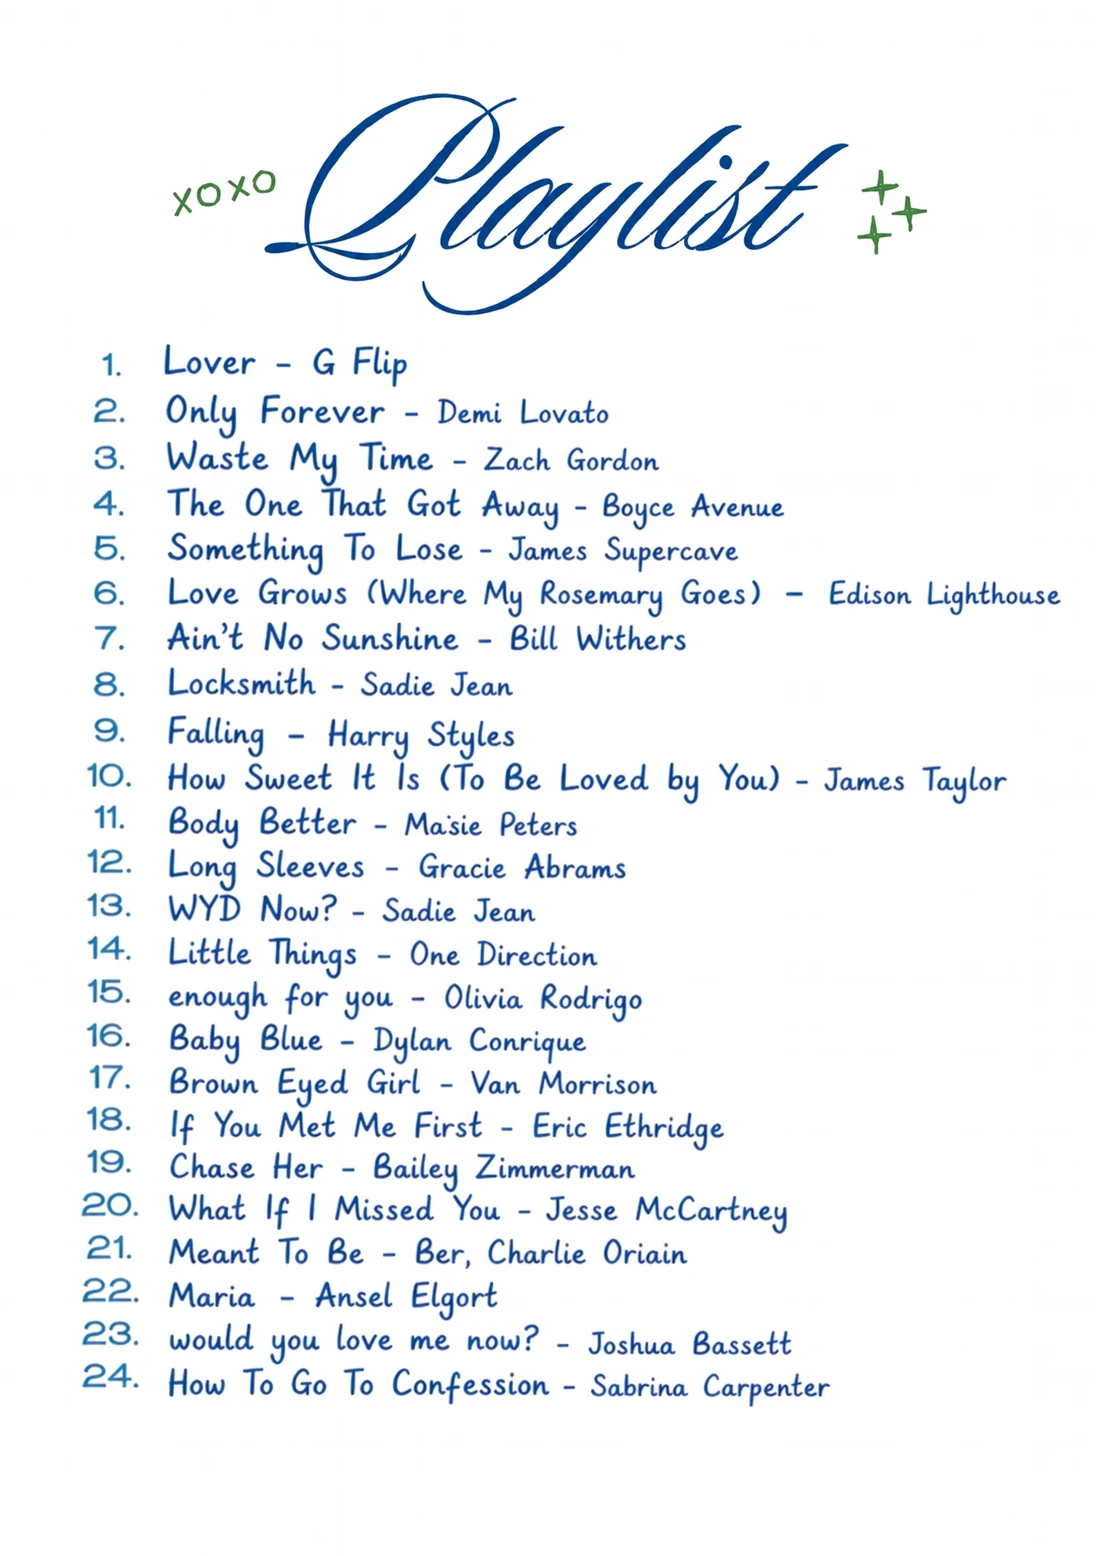 xoxo Playlist
1. Lover - G Flip
2. Only Forever - Demi Lovato
3. Waste My Time - Zach Gordon
4. The One That Got Away - Boyce Avenue
5. Something To Lose - James Supercave
6. Love Grows (Where My Rosemary Goes) - Edison Lighthouse
7. Ain't No Sunshine - Bill Withers
8. Locksmith - Sadie Jean
9. Falling - Harry Styles
10. How Sweet It Is (To Be Loved by You) - James Taylor
11. Body Better - Maisie Peters
12. Long Sleeves - Gracie Abrams
13. WYD Now? - Sadie Jean
14. Little Things - One Direction
15. enough for you - Olivia Rodrigo
16. Baby Blue - Dylan Conrique
17. Brown Eyed Girl - Van Morrison
18. If You Met Me First - Eric Ethridge
19. Chase Her - Bailey Zimmerman
20. What If I Missed You - Jesse McCartney
21. Meant To Be - Ber, Charlie Oriain
22. Maria - Ansel Elgort
23. would you love me now? - Joshua Bassett
24. How To Go To Confession - Sabrina Carpenter